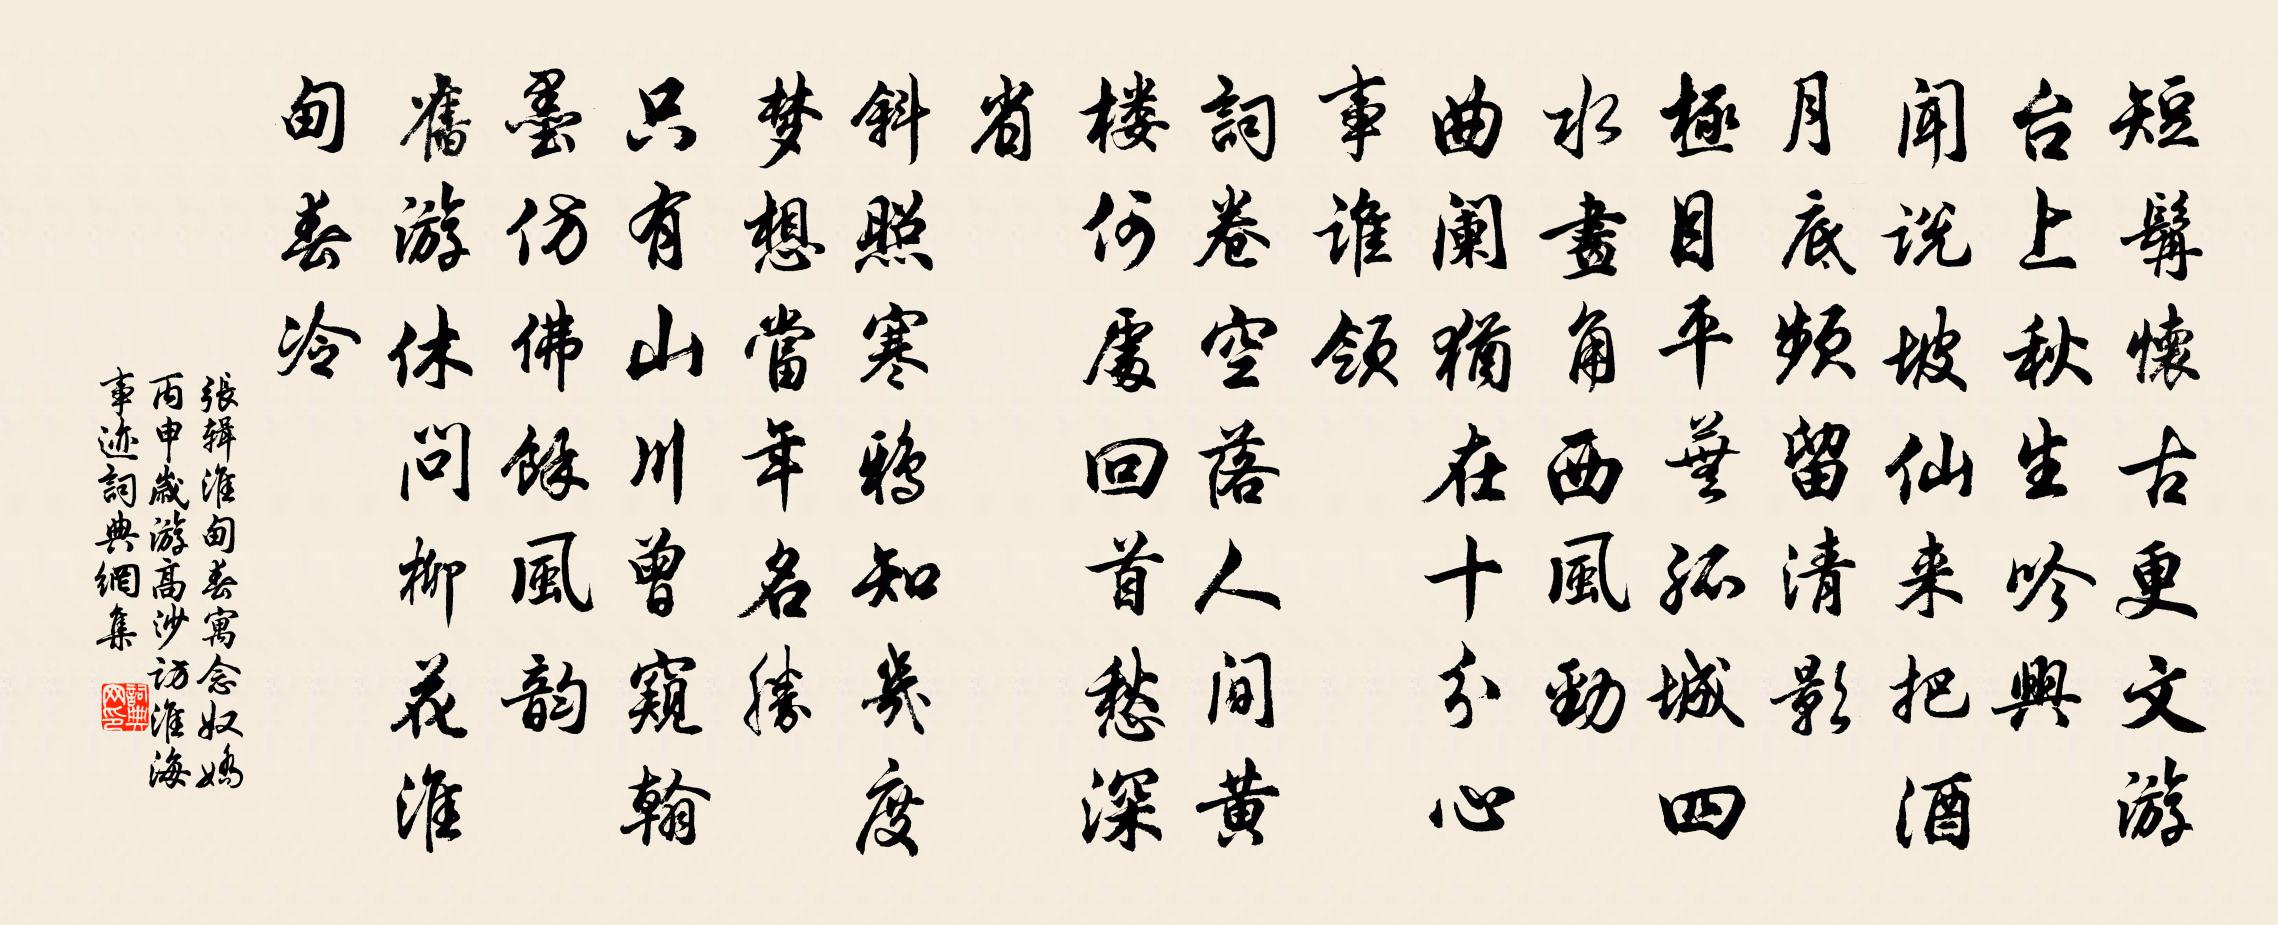 短髯懷古更文游
台上秋生吟興
闻说坡仙来把酒
月底频留清影
極目平蕪孤城四
水畫角西風勁
曲阑犹在十分心
事谁領
詞卷空落人间黄
楼何處回首愁深
省
斜照寒鸦知幾度
梦想當年名勝
只有山川曾窺翰
墨仿佛餘風韵
舊游休问柳花淮
甸春冷
張辑淮甸春寓念奴嬌
丙申歲游高沙访淮海
事迹詞典網集
詞典
网印